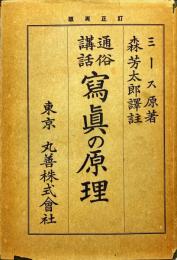 訂正再版
ミース原著
森芳太郎譯註
通俗講話
寫眞の原理
東京 丸善株式會社